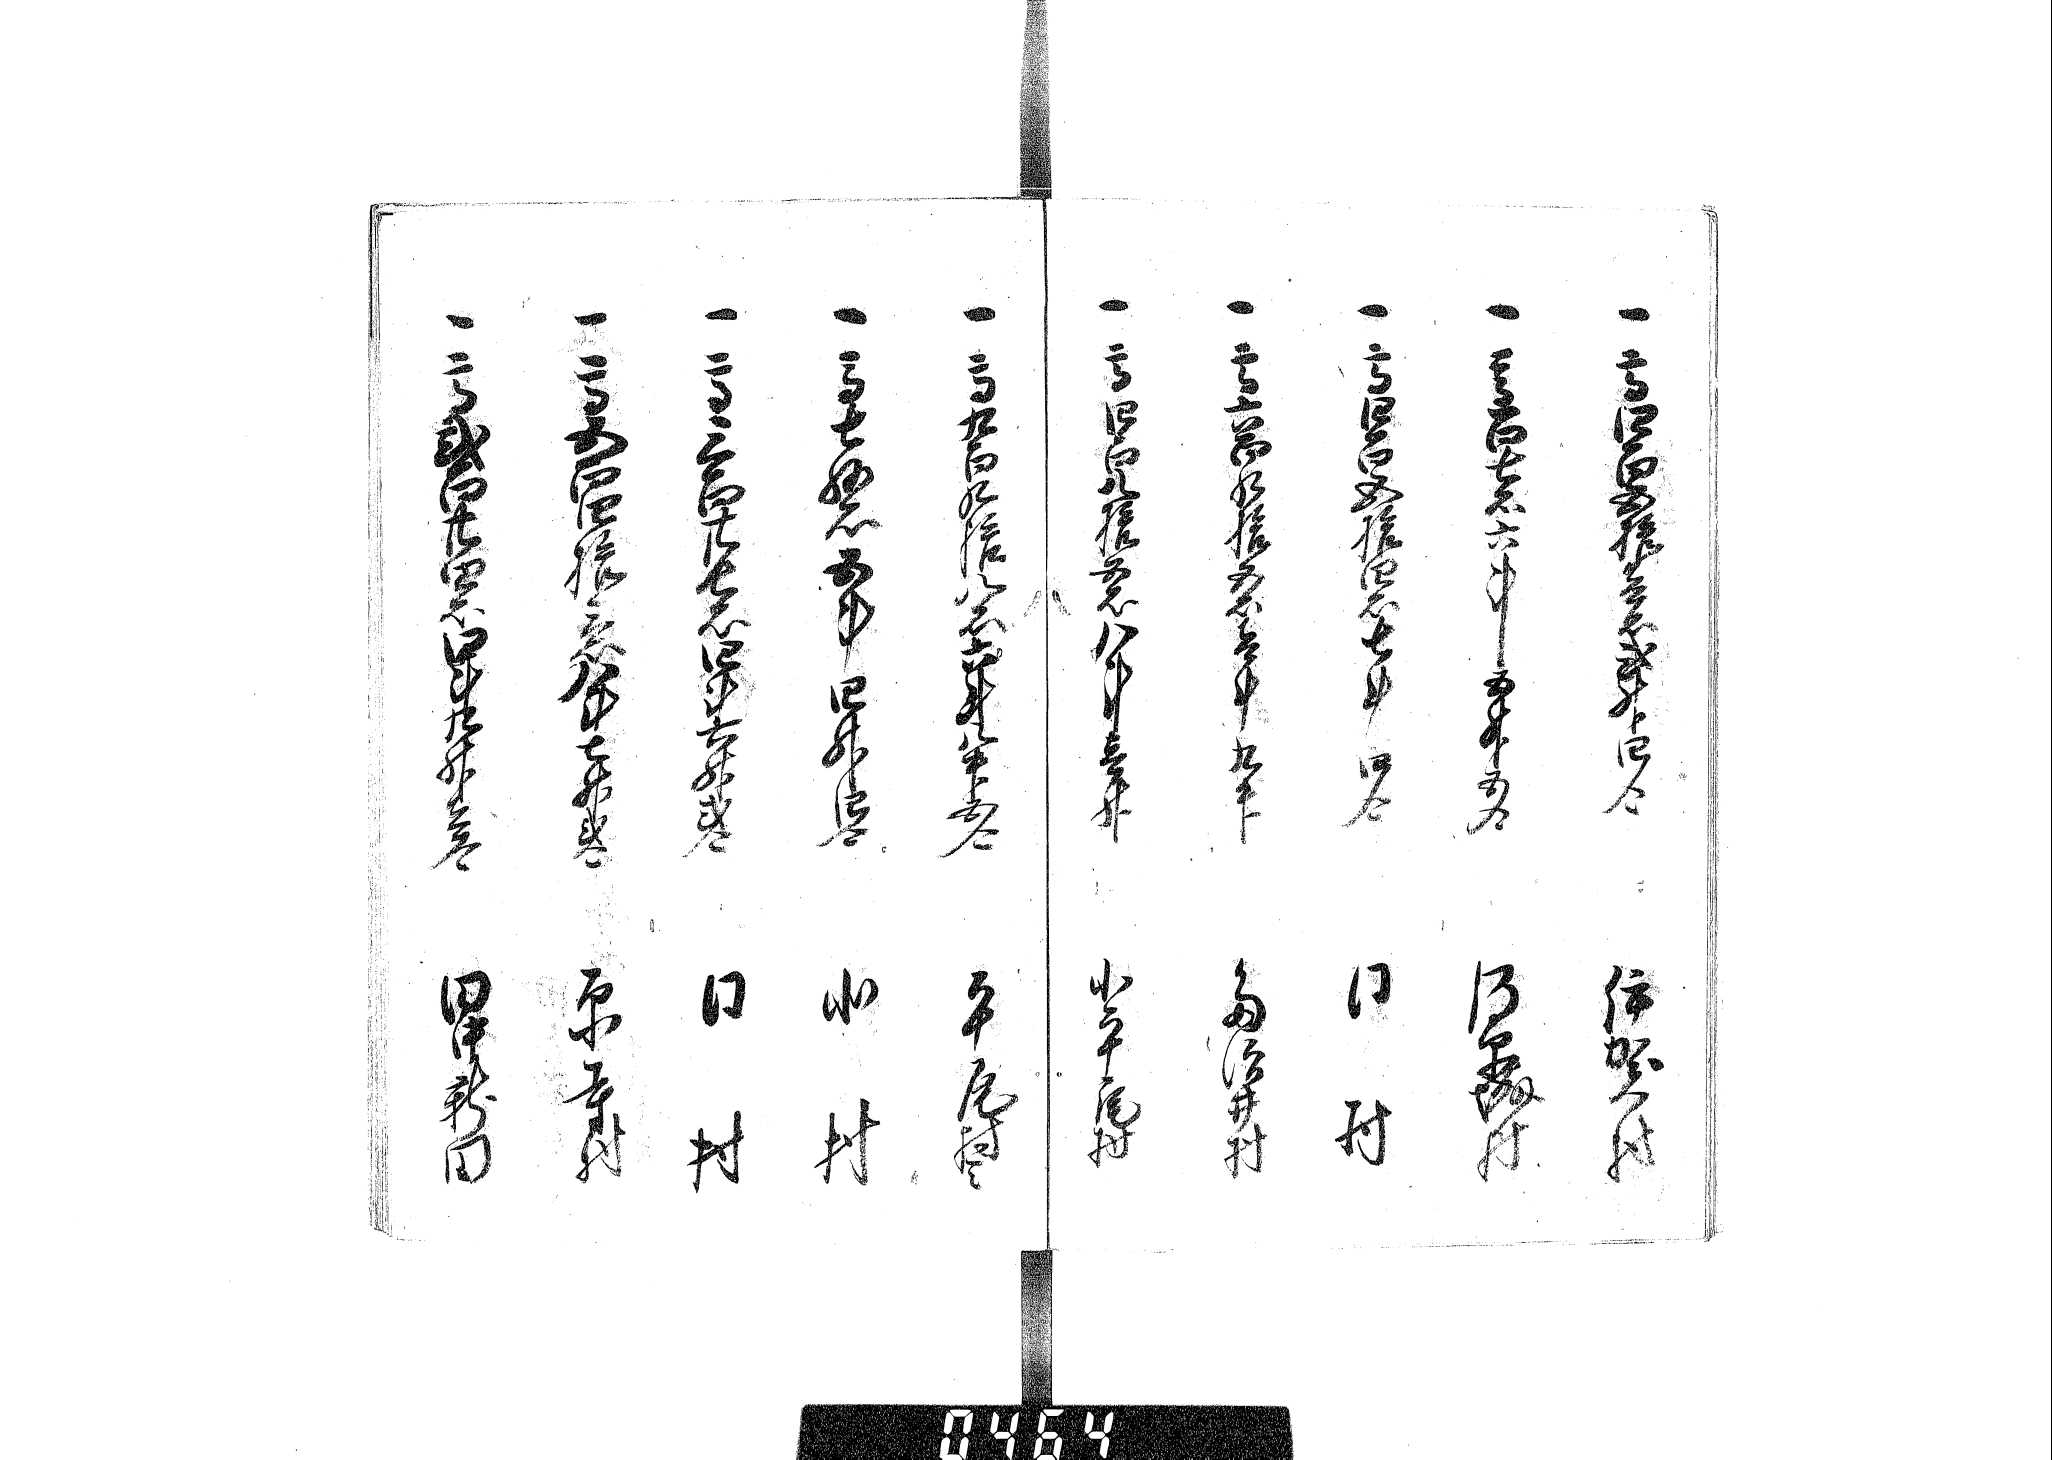 一高四百五拾壱石弐升四合 伊加賀村
一高百七石六斗五升五合 河原村
一高四百五拾四石七斗四合 同村
一高六百九拾五石壱斗九升 多治井村
一高四百八拾五石八斗壱升 小平尾村
一高九百九拾八石六斗八升五合 平尾村
一高七拾石五斗四升四合 小村
一高三百廿七石四斗六升弐合 同村
一高五百四拾壱石八斗七升弐合 原寺村
一高弐百廿四石四斗九升壱合 田中新田
0464